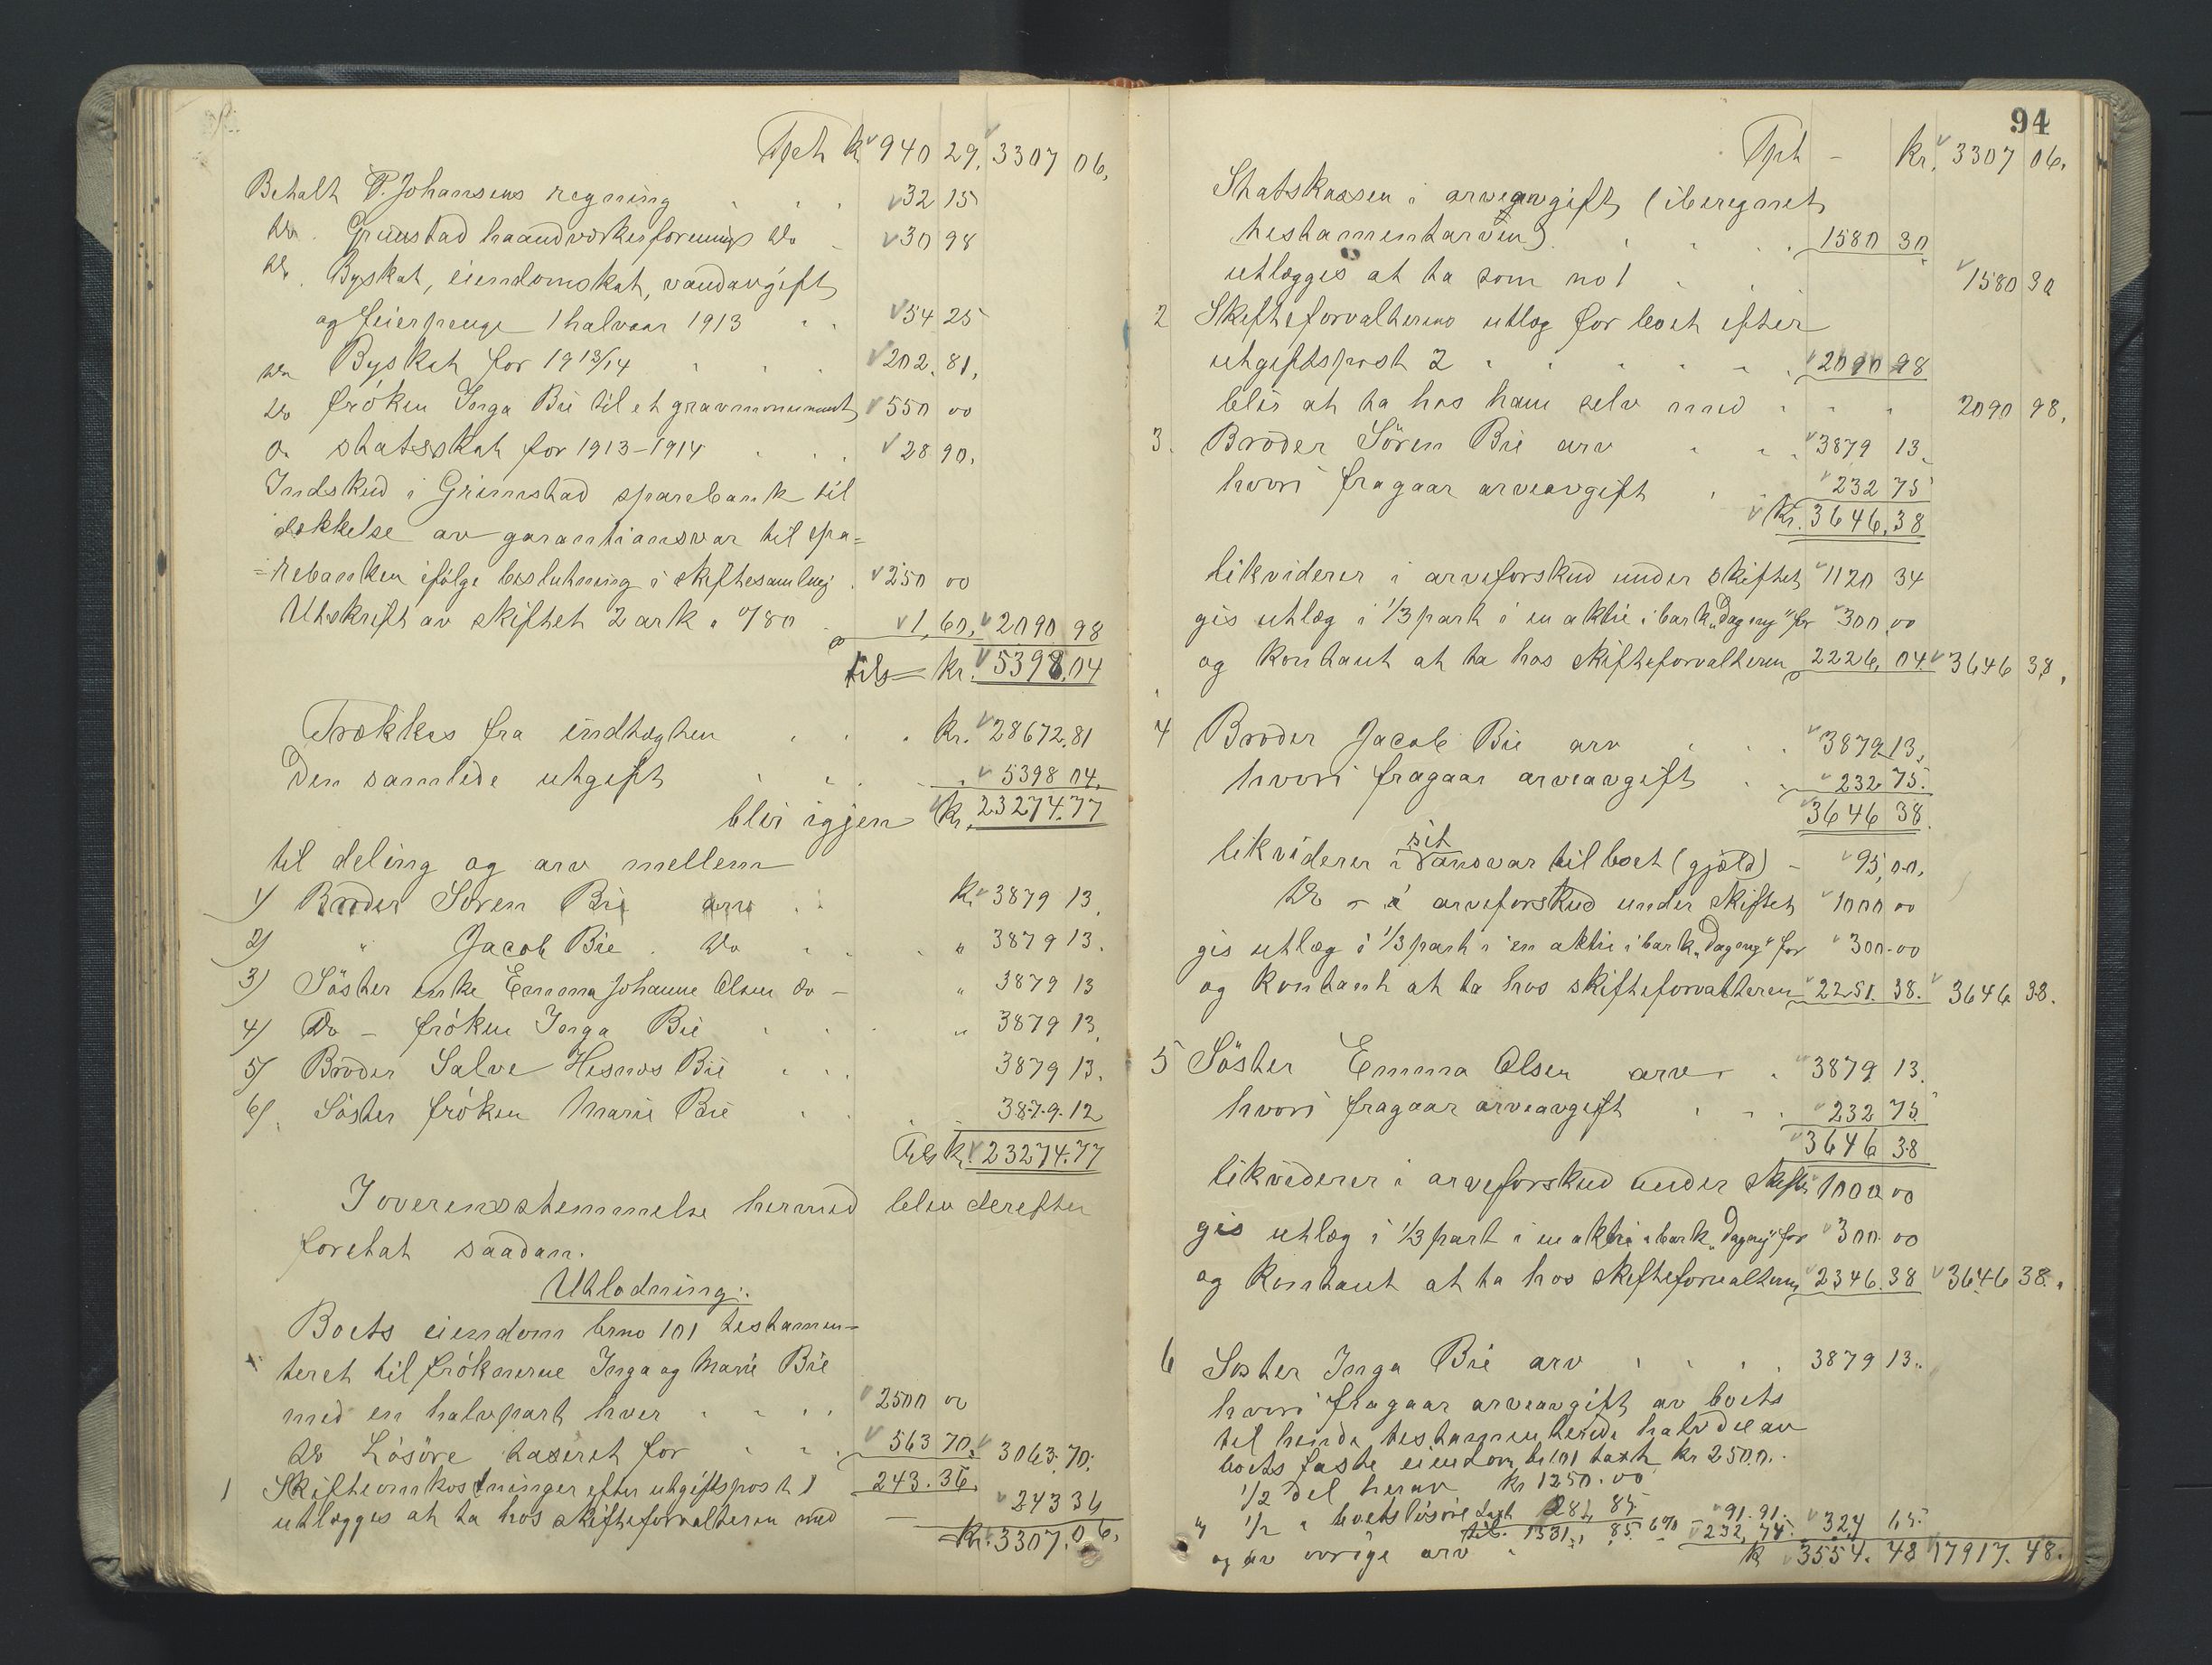 Tpt kr 940 29. 3307 06.
Betalt P. Johansens regning 32 15
Do. Grimstad haandverkerforenings do 30 98
Do. Byskat, eiendomskat, vandavgift
og feierpenge 1 halvaar 1913 54 25
Do Byskat for 1913/14 202. 81.
Do frøken Inga Bie til et gravmonument 550 00
Do statsskat for 1913-1914 28 90.
Indskud i Grimstad sparebank til
dækkelse av garantiansvar til spa=
=rebanken ifølge beslutning i skiftesamling 250 00
Utskrift av skiftet 2 ark a 0/80 1,60. 2090 98
tils kr. 5398.04
Trækkes fra indtægten kr. 28672.81
Den samlede utgift " 5398 04.
blir igjen kr. 23274.77
til deling og arv mellem
1) Broder Søren Bie arv kr 3879 13.
2) " Jacob Bie. Do " 3879 13.
3) Søster enke Emma Johanne Olsen do - " 3879 13
4) Do - frøken Inga Bie " 3879 13.
5) Broder Salve Hesnæs Bie 3879 13.
6) Søster frøken Marie Bie 3879.12
Tils kr. 23274.77
I overensstemmelse hermed blev derefter
foretat saadan.
Utlodning:
Boets eiendom brno 101 testamen-
teret til frøknerne Inga og Marie Bie
med en halvpart hver 2500 00
Do Løsøre taxeret for 563 70. 3063.70.
1 Skifteomkostninger efter utgiftspost 1 243.36.
utlægges at ta hos skifteforvalteren med 243 36
Kr. 3307.06.
94
Tpt - Kr. 3307 06.
Statskassen i arveavgift (iberegnet
testamentarven) 1580 30.
utlægges at ta som no 1 1580 30
2 Skifteforvalterens utlæg for boet efter
utgiftspost 2 2090 98
blir at ta hos ham selv med 2090 98.
3. Broder Søren Bie arv 3879 13.
hvori fragaar arveavgift 232 75
Kr. 3646.38
likviderer i arveforskud under skiftet 1120 34
gis utlæg i 1/3 part i en aktie i bark "Dagny" for 300.00
og kontant at ta hos skifteforvalteren 2226. 04. 3646 38.
4 Broder Jacob Bie arv 3879 13.
hvori fragaar arveavgift 232 75.
3646 38.
likviderer i sit ansvar til boet (gjæld) - 95,00.
Do - i arveforskud under skiftet 1000 00
gis utlæg i 1/3 part i en aktie i bark "Dagny" for 300.00
og kontant at ta hos skifteforvalteren 2251. 38. 3646 38.
5 Søster Emma Olsen arv 3879 13.
hvori fragaar arveavgift 232 75.
3646 38
likviderer i arveforskud under skiftet 1000 00
gis utlæg i 1/3 part i en aktie i bark "Dagny" for 300 00
og kontant at ta hos skifteforvalteren 2346. 38 3646 38.
6 Søster Inga Bie arv 3879 13.
hvori fragaar arveavgift av boets
til hende testamenterede halvdel av
boets faste eiendom br 101 taxt kr 2500.
1/2 del herav kr 1250.00
" 1/2 " boets løsøre taxt 281, 85
tils. 1531, 85. 6% - 91.91.
og av øvrige arv 232,74. 324 65.
kr 3554. 48 17917. 48.